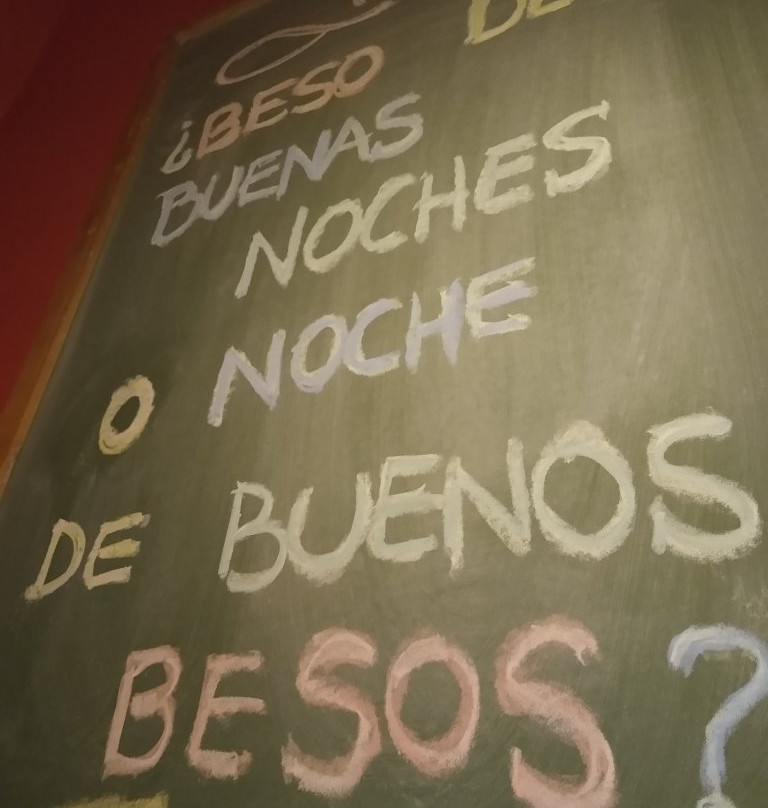 ¿BESO DE
BUENAS
NOCHES
O NOCHE
DE BUENOS
BESOS?